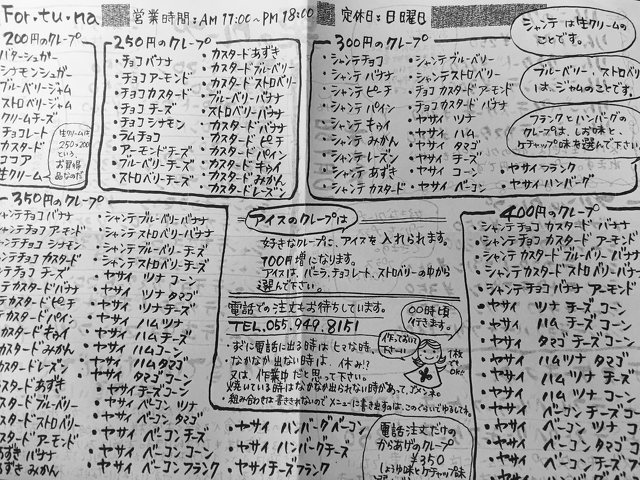 For・tu・na
営業時間:AM 11:00~PM 18:00
定休日:日曜日
200円のクレープ
バターシュガー
シナモンシュガー
ブルーベリージャム
ストロベリージャム
クリームチーズ
チョコレート
カスタード
ココア
生クリーム
生クリームは
250→200
という
お買得
品なのだ
250円のクレープ
・チョコ バナナ
・チョコ アーモンド
・チョコ カスタード
・チョコ チーズ
・チョコ シナモン
・ラムチョコ
・アーモンドチーズ
・ブルーベリーチーズ
・ストロベリーチーズ
・カスタード あずき
・カスタード ブルーベリー
・カスタード ストロベリー
・ブルーベリー バナナ
・ストロベリー バナナ
・カスタード バナナ
・カスタード ピーチ
・カスタード パイン
・カスタード キゥイ
・カスタード みかん
・カスタード レーズン
300円のクレープ
・シャンテチョコ
・シャンテ バナナ
・シャンテ ピーチ
・シャンテ パイン
・シャンテ キゥイ
・シャンテ みかん
・シャンテ レーズン
・シャンテ あずき
・シャンテ カスタード
・シャンテ ブルーベリー
・シャンテストロベリー
・チョコ カスタード アーモンド
・チョコ カスタード バナナ
・ヤサイ ツナ
・ヤサイ ハム
・ヤサイ タマゴ
・ヤサイ チーズ
・ヤサイ コーン
・ヤサイ ベーコン
・ヤサイフランク
・ヤサイ ハンバーグ
シャンテは生クリームの
ことです。
ブルーベリー、ストロベリー
は、ジャムのことです。
フランクとハンバーグの
クレープは、しお味と
ケチャップ味を選んで下さい。
350円のクレープ
シャンテチョコ バナナ
シャンテチョコ アーモンド
シャンテチョコ シナモン
シャンテチョコ チーズ
シャンテカスタード バナナ
シャンテカスタード ピーチ
シャンテカスタード パイン
シャンテカスタード キゥイ
シャンテカスタード みかん
カスタード レーズン
カスタード あずき
カスタード ブルーベリー
カスタード ストロベリー
カスタード アーモンド
あずき バナナ
あずき みかん
・シャンテ ブルーベリー バナナ
・シャンテ ストロベリー バナナ
・シャンテ ブルーベリー チーズ
・シャンテ ストロベリー チーズ
・ヤサイ ツナ コーン
・ヤサイ ツナ タマゴ
・ヤサイ ツナ チーズ
・ヤサイ ハムツナ
・ヤサイ ハムチーズ
・ヤサイ ハムコーン
・ヤサイ ハムタマゴ
・ヤサイ タマゴ コーン
・ヤサイ チーズコーン
・ヤサイ ベーコン ツナ
・ヤサイ ベーコン タマゴ
・ヤサイ ベーコンチーズ
・ヤサイ ベーコン コーン
・ヤサイ ベーコンフランク
・ヤサイ ハンバーグ ベーコン
・ヤサイ ハンバーグチーズ
・ヤサイチーズフランク
アイスのクレープは
好きなクレープに、アイスを入れられます。
100円増になります。
アイスは、バニラ、チョコレート、ストロベリーの中から
選んで下さい。
電話での注文もお待ちしています。
TEL.055.949.8151
・すぐに電話に出る時はヒマな時、
・なかなか出ない時は、休み!?
又は、作業中だと思って下さい。
焼いている時はなかなか出られない時があって、ゴメン
・組み合わせは書ききれないのでメニューに書き出すのは、このくらいでゆるして下さい。
○○時頃
行きます。
作っておいて
下さーい
1枚でも
OK!
電話注文だけの
からあげのクレープ
¥350
(しょうゆ味とケチャップ味
400円のクレープ
・シャンテチョコ カスタード バナナ
・シャンテチョコ カスタード アーモンド
・シャンテカスタード ブルーベリー バナナ
・シャンテカスタード ストロベリー バナナ
・シャンテチョコ バナナ アーモンド
・ヤサイ ツナ チーズ コーン
・ヤサイ ハム チーズ コーン
・ヤサイ ハムツナ タマゴ
・ヤサイ ハムツナ チーズ
・ヤサイ ハムツナ コーン
・ヤサイ ベーコンチーズ コーン
・ヤサイ ベーコンツナ タマゴ
・ヤサイ ベーコンツナ チーズ
・ヤサイ ベーコンツナ コーン